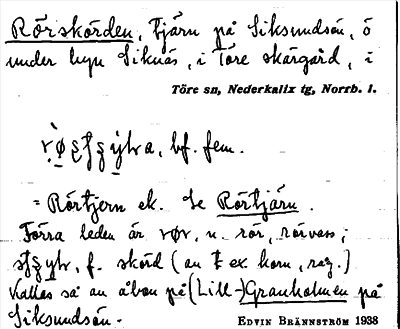 Rörskörden, tjärn på Siksundsön, ö
under byn Siknäs, i Töre skärgård, i
Töre sn, Nederkalix tg, Norrb. l.
bf. fem.
= Rörtjern ek. Se Rörtjärn.
Förra leden är røv, n. rör, rörvass;
f. skörd (av t. ex. korn, råg.)
Kallas så av åbon på (Lill-)Granholmen på
Siksundsön.
EDVIN BRÄNNSTRÖM 1938